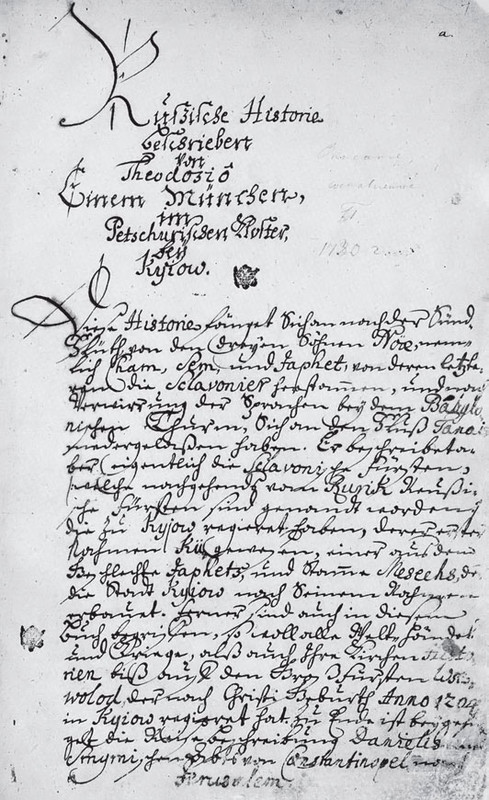 a.
Rußische Historie
beschrieben
von
Theodosiô
Einem München,
im
Petschurischen Kloster,
bey
Kyiow.
1730
Diese Historie fänget Sich an nach der Sünd,
fluth, von den dreyen Söhnen Noæ, nem,
lich Ham, Sem, und Japhet, von deren letzte,
rem die Sclavonier herstammen, und nach
Verwirrung der Sprachen bey dem Babylo
nischen Thurm, Sich an den Fluß Tanais
niedergelaßen haben. Er beschreibet a,
ber eigentlich die Sclavonische Fürsten,
welche nachgehends vom Rurik Reußi,
sche Fürsten sind genandt worden
die zu Kyjow regieret haben, derer erster
Nahmen Kij gewesen, einer aus dem
Geschlechte Japhets, und Stamme Mesechs, der
die Stadt Kyjow nach Seinem Nahmen
erbauet. Ferner sind auch in diesem
Buch begriffen, so woll alle Welt, händel
und Kriege, alß auch Ihre Kirchen Histo
rien biß auf den Groß Fürsten
wolod, der nach Christi Gebuhrt Anno
in Kyiow regieret hat. zu Ende ist beygefü
get die Reise beschreibung Danielis
schen Abts von Constantinopel nach
Jerusalem.